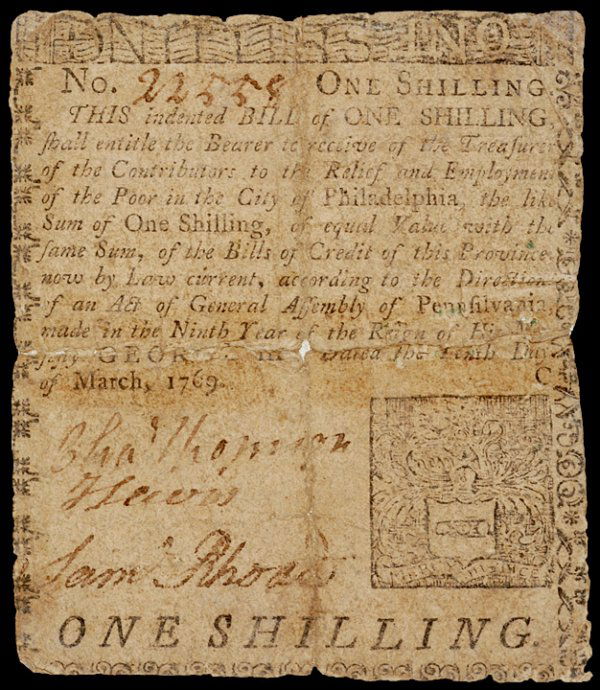 ONE SHILLING
No. 22558 ONE SHILLING
THIS indented BILL of ONE SHILLING
ſhall entitle the Bearer to receive of the Treaſurer
of the Contributors to the Relief and Employment
of the Poor in the City of Philadelphia, the like
Sum of One Shilling, of equal Value with the
ſame Sum, of the Bills of Credit of this Province
now by Law current, according to the Direction
of an Act of General Aſſembly of Pennſilvania,
made in the Ninth Year of the Reign of His Ma-
jeſty GEORGE III Dated the Tenth Day
of March, 1769. C
Chaˢ Thomson
Saml. Rhoads
ONE SHILLING.